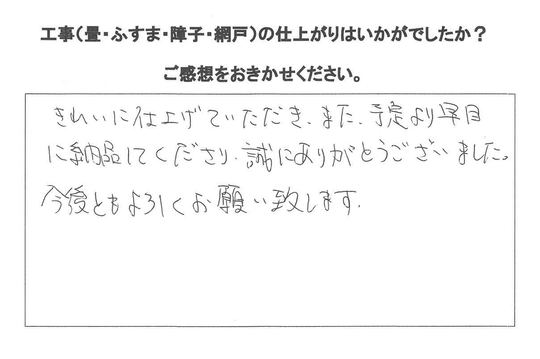 工事（畳・ふすま・障子・網戸）の仕上がりはいかがでしたか？
ご感想をおきかせください。
きれいに仕上げていただき、また、予定より早目
に納品してくださり、誠にありがとうございました。
今後ともよろしくお願い致します。